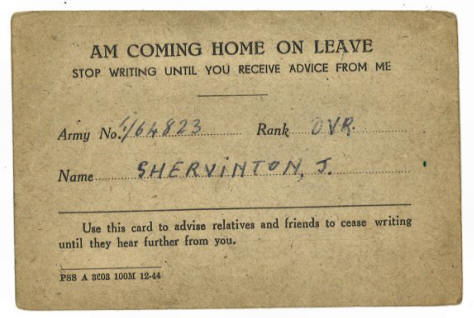 AM COMING HOME ON LEAVE
STOP WRITING UNTIL YOU RECEIVE ADVICE FROM ME
Army No. 4/64823 Rank DVR.
Name SHERVINTON, J.
Use this card to advise relatives and friends to cease writing
until they hear further from you.
PSS A 3603 100M 12-44